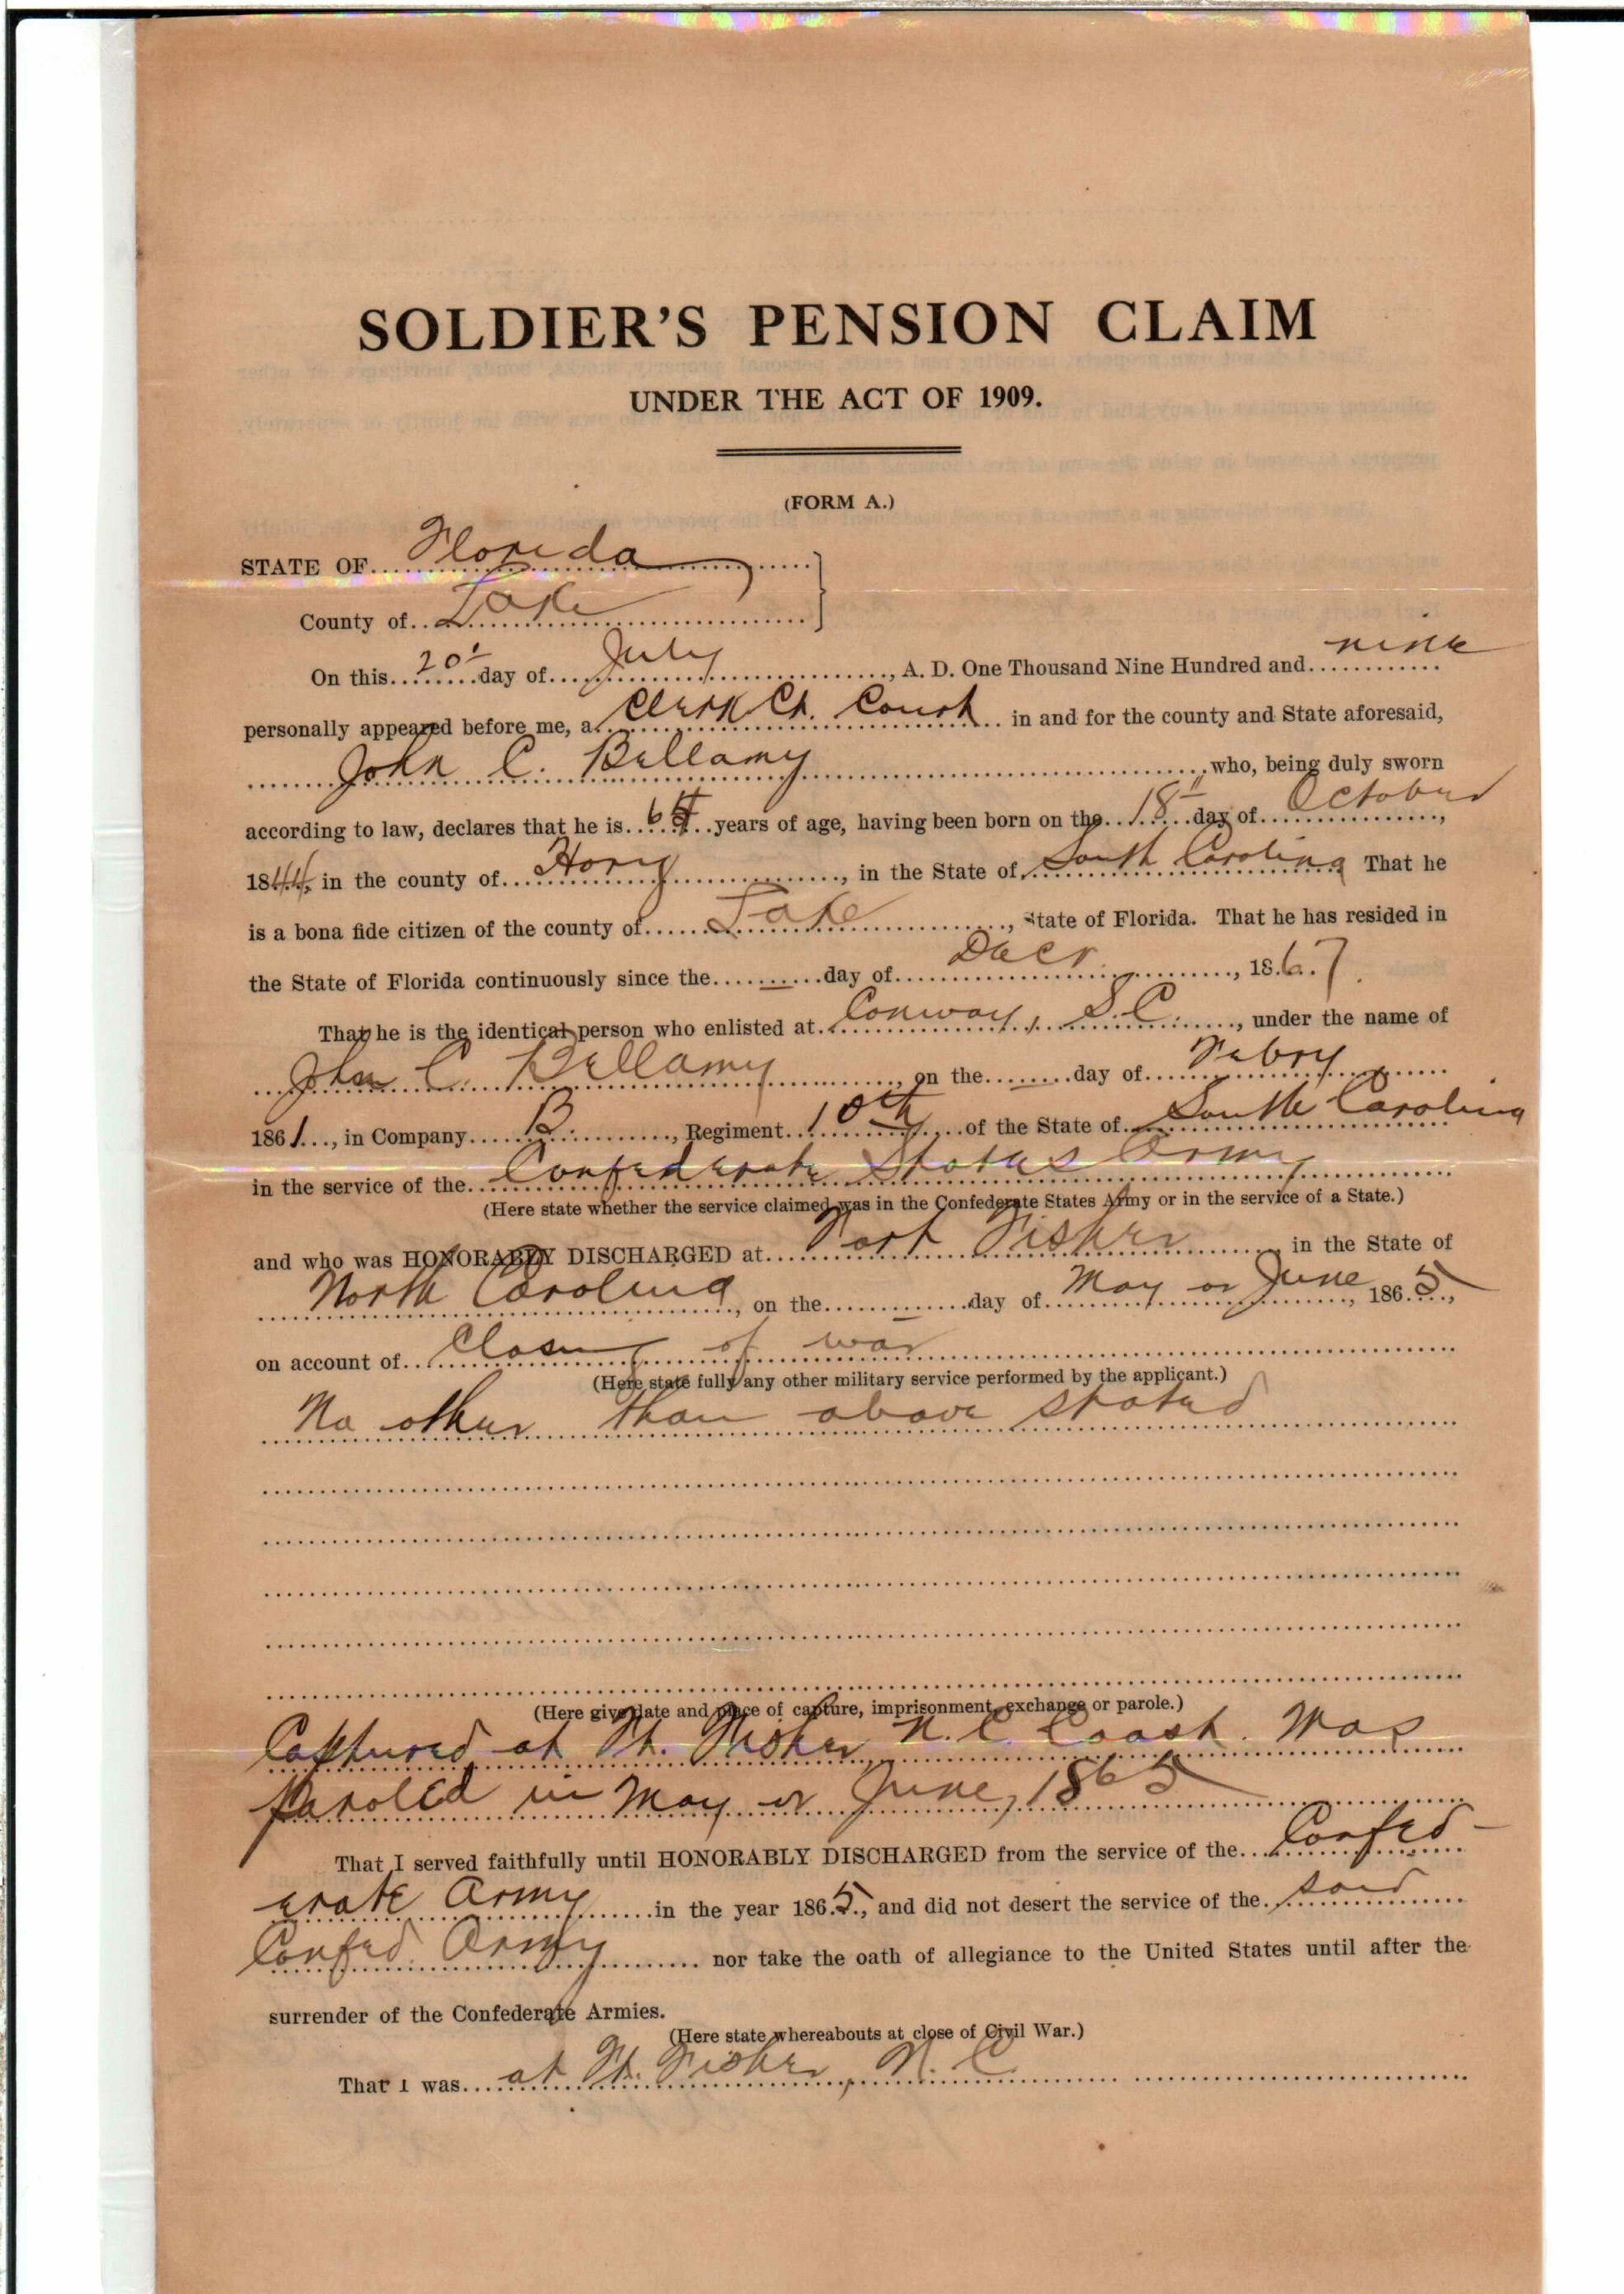 SOLDIER'S PENSION CLAIM
UNDER THE ACT OF 1909.
(FORM A.)
STATE OF Florida
County of Lake
On this 20 day of July, A. D. One Thousand Nine Hundred and nine
personally appeared before me, a Clerk Ct. Court in and for the county and State aforesaid,
John C. Bellamy, who, being duly sworn
according to law, declares that he is 64 years of age, having been born on the 18" day of October,
1844, in the county of Horry, in the State of South Carolina That he
is a bona fide citizen of the county of Lake, State of Florida. That he has resided in
the State of Florida continuously since the — day of Decr., 1867.
That he is the identical person who enlisted at Conway, S.C., under the name of
John C. Bellamy, on the — day of Febry
1861, in Company B., Regiment 10th, of the State of South Carolina
in the service of the Confederate States Army
(Here state whether the service claimed was in the Confederate States Army or in the service of a State.)
and who was HONORABLY DISCHARGED at Fort Fisher, in the State of
North Carolina, on the — day of May or June, 1865,
on account of Closing of war
(Here state fully any other military service performed by the applicant.)
No other than above stated
(Here give date and place of capture, imprisonment, exchange or parole.)
Captured at Ft. Fisher, N.C. Coast. Was
paroled in May or June, 1865
That I served faithfully until HONORABLY DISCHARGED from the service of the Confed-
erate Army in the year 1865, and did not desert the service of the said
Confed. Army nor take the oath of allegiance to the United States until after the
surrender of the Confederate Armies.
(Here state whereabouts at close of Civil War.)
That I was at Ft. Fisher, N.C.